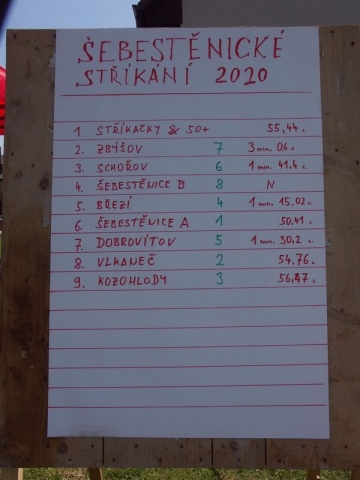 ŠEBESTĚNICKÉ
STŘÍKÁNÍ 2020
1. STŘÍKAČKY & 50+ 55,44 s.
2. ZBÝŠOV 7 3 min. 06 s.
3. SCHOŘOV 6 1 min. 41,4 s.
4. ŠEBESTĚNICE B 8 N
5. BŘEZÍ 4 1 min. 15,02 s.
6. ŠEBESTĚNICE A 1 50,41 s.
7. DOBROVÍTOV 5 1 min. 30,2 s.
8. VLKANEČ 2 54,76 s.
9. KOZOHLODY 3 56,47 s.